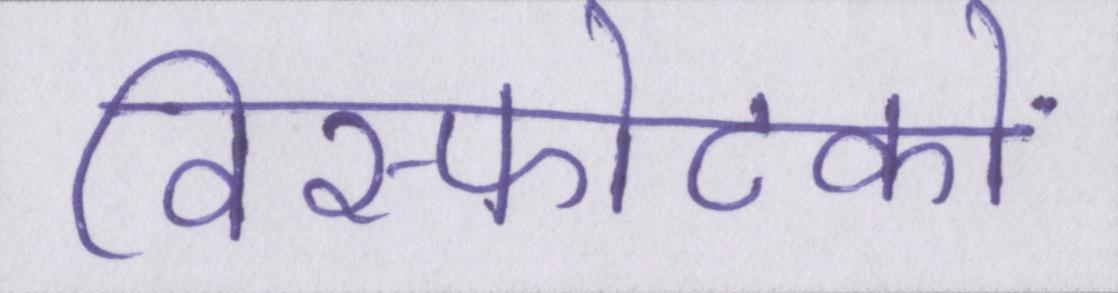 विस्फोटकों